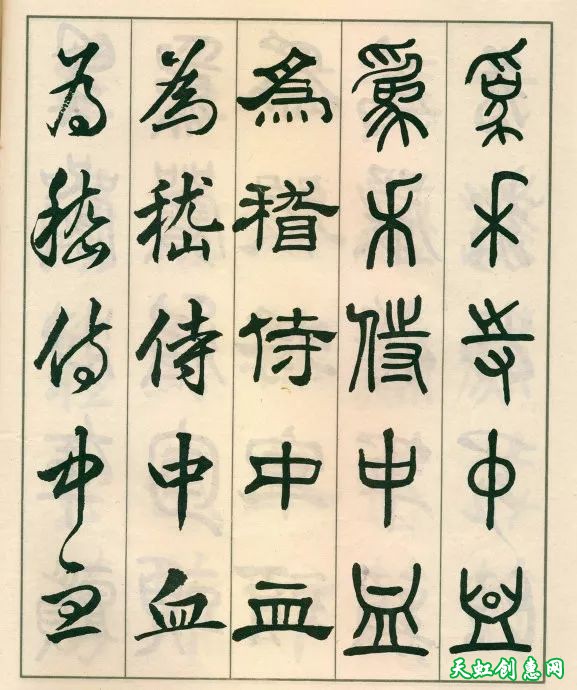 為禾寺中血
為禾侍中血
為稽侍中血
為嵇侍中血
為嵇侍中血
天虹创惠网